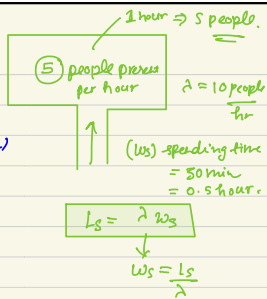 1 hour ⇒ 5 people.
5 people present
per hour
λ = 10 people/hr
(Ws) spending time
= 50 min
= 0.5 hour.
Ls = λ Ws
Ws = Ls/λ